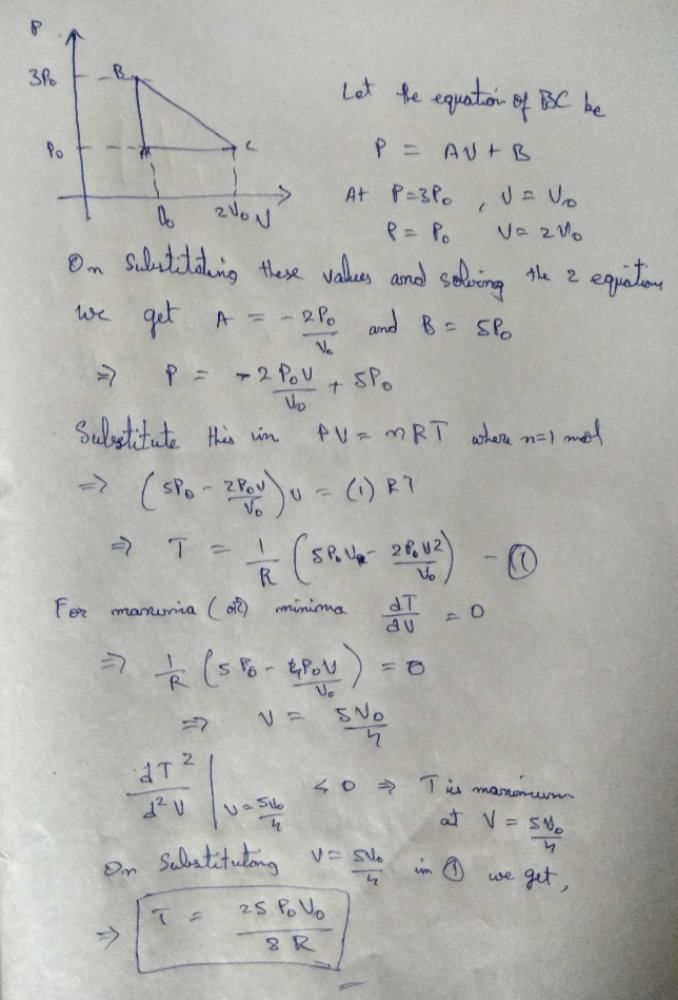 P
3P₀ B
P₀ A C
V₀ 2V₀ V
Let the equation of BC be
P = AV + B
At P=3P₀ , V = V₀
P = P₀ V = 2V₀
On Substitating these values and solving the 2 equations
we get A = - 2P₀/V₀ and B = 5P₀
⇒ P = -2 P₀V/V₀ + 5P₀
Substitute this in PV = nRT where n=1 mol
⇒ (5P₀ - 2P₀V/V₀) V = (1) RT
⇒ T = 1/R (5P₀V - 2P₀V²/V₀) - ①
For maxima (or) minima dT/dV = 0
⇒ 1/R (5P₀ - 4P₀V/V₀) = 0
⇒ V = 5V₀/4
dT²/d²V | V = 5V₀/4 < 0 ⇒ T is maximum
at V = 5V₀/4
On Substituting V = 5V₀/4 in ① we get,
⇒ T = 25 P₀V₀/8 R